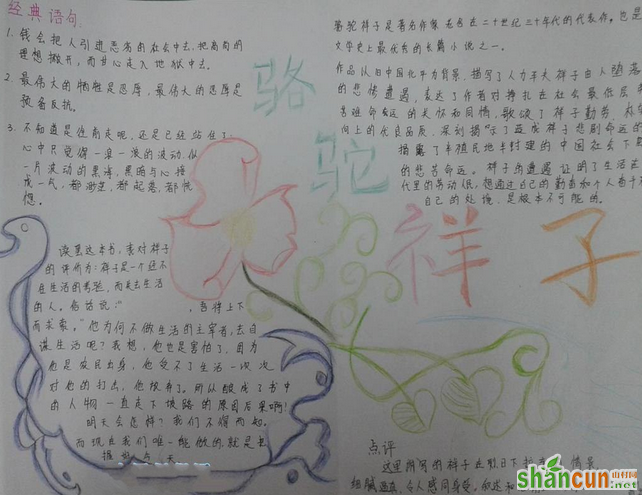 经典语句
1. 钱会把人引进恶劣的社会中去,把高尚的
理想撇开,而甘心走入地狱中去。
2. 最伟大的牺牲是忍辱,最伟大的忍辱是
预备反抗。
3. 不知道是往前走呢,还是已经站住了,
心中只觉得一浪一浪的波动,似
一片波动的黑海,黑暗与心接
成一气,都渺茫,都起落,都恍
惚。
读罢这本书,我对祥子
的评价为:祥子是一个经不
住生活的考验,而失去生活
的人。俗话说:“ 吾将上下
而求索。”他为何不做生活的主宰者,去自
谋生活呢?我想,他也是害怕了,因为
他是农民出身,他受不了生活一次次
对他的打击,他放弃了。所以酿成了书中
的人物一直走下坡路的原因后果啊!
明天会怎样?我们不得而知。
而现在我们唯一能做的,就是去
今天
骆驼
祥子
骆驼祥子是著名作家老舍在二十世纪三十年代的代表作,也是
文学史上最优秀的长篇小说之一。
作品以旧中国北平为背景,描写了人力车夫祥子由人堕落
的悲惨遭遇,表达了作者对挣扎在社会最底层
苦难命运的关怀和同情,歌颂了祥子勤劳、
向上的优良品质,深刻揭示了造成祥子悲剧命运的
揭露了半殖民地半封建的中国社会下层
的悲苦命运。祥子的遭遇证明了生活在
代里的劳动人民,想通过自己的勤奋和个人奋斗
自己的处境,是根本不可能的。
点评
这里描写的祥子在烈日下拉 情景,
细腻逼真,令人感同身受,
shancun.net
山村网